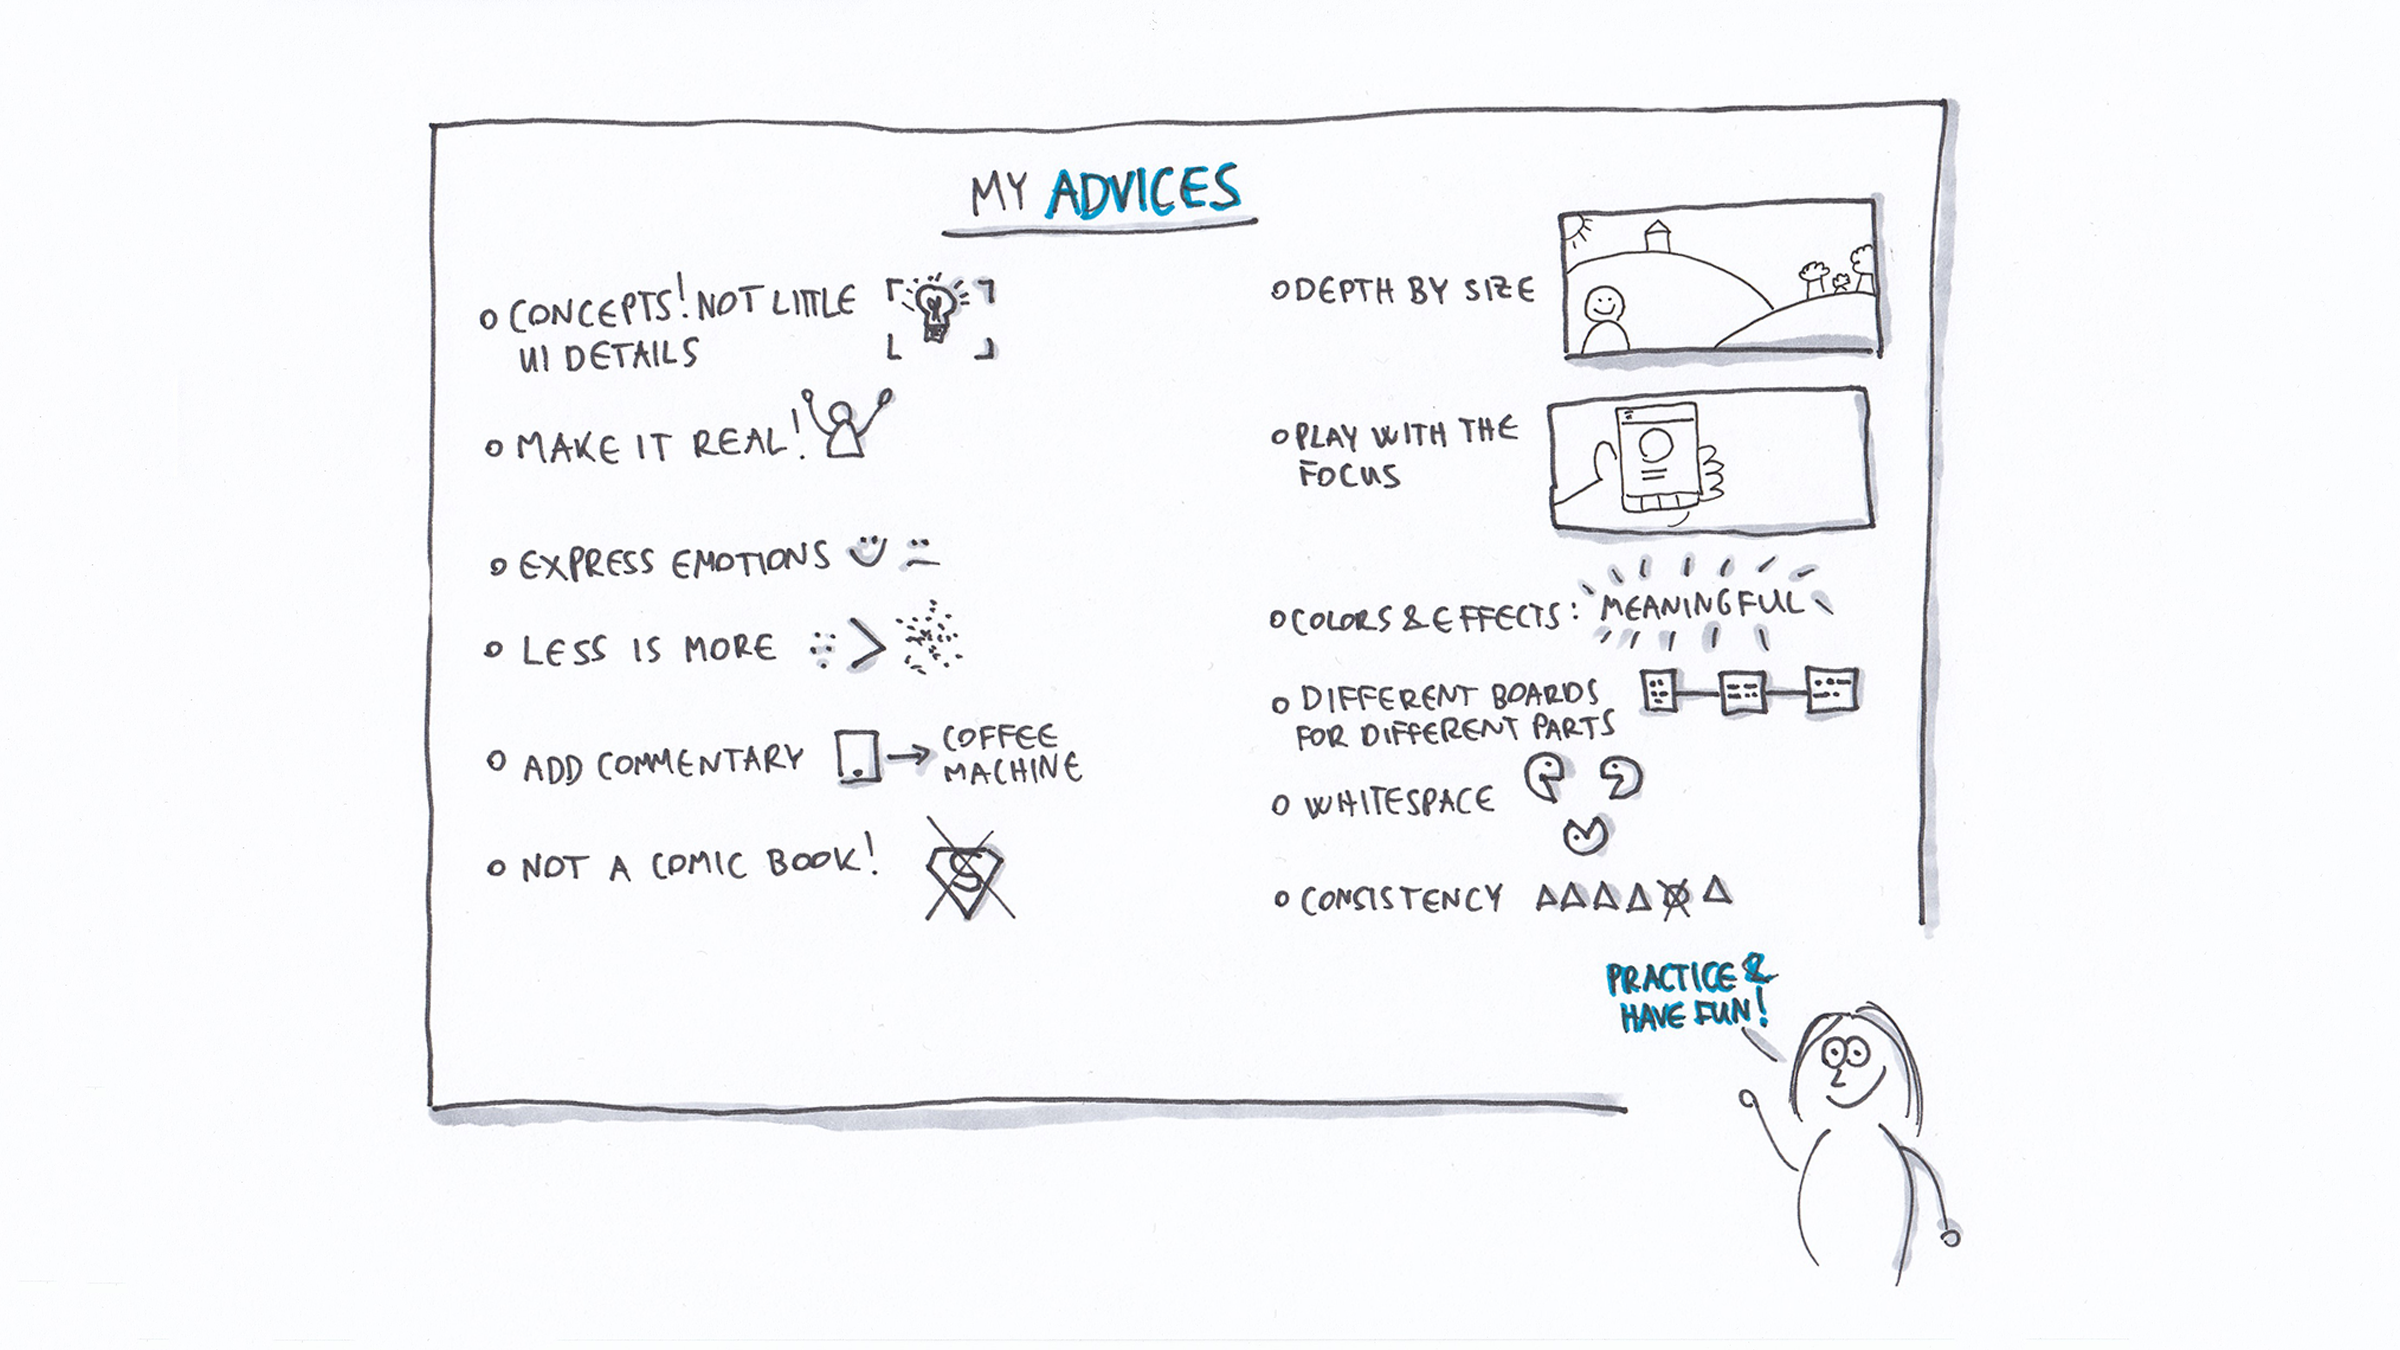 MY ADVICES
CONCEPTS! NOT LITTLE
UI DETAILS
MAKE IT REAL!
EXPRESS EMOTIONS
LESS IS MORE
ADD COMMENTARY
COFFEE
MACHINE
NOT A COMIC BOOK!
S
DEPTH BY SIZE
PLAY WITH THE
FOCUS
COLORS & EFFECTS: MEANINGFUL
DIFFERENT BOARDS
FOR DIFFERENT PARTS
WHITESPACE
CONSISTENCY
PRACTICE &
HAVE FUN!